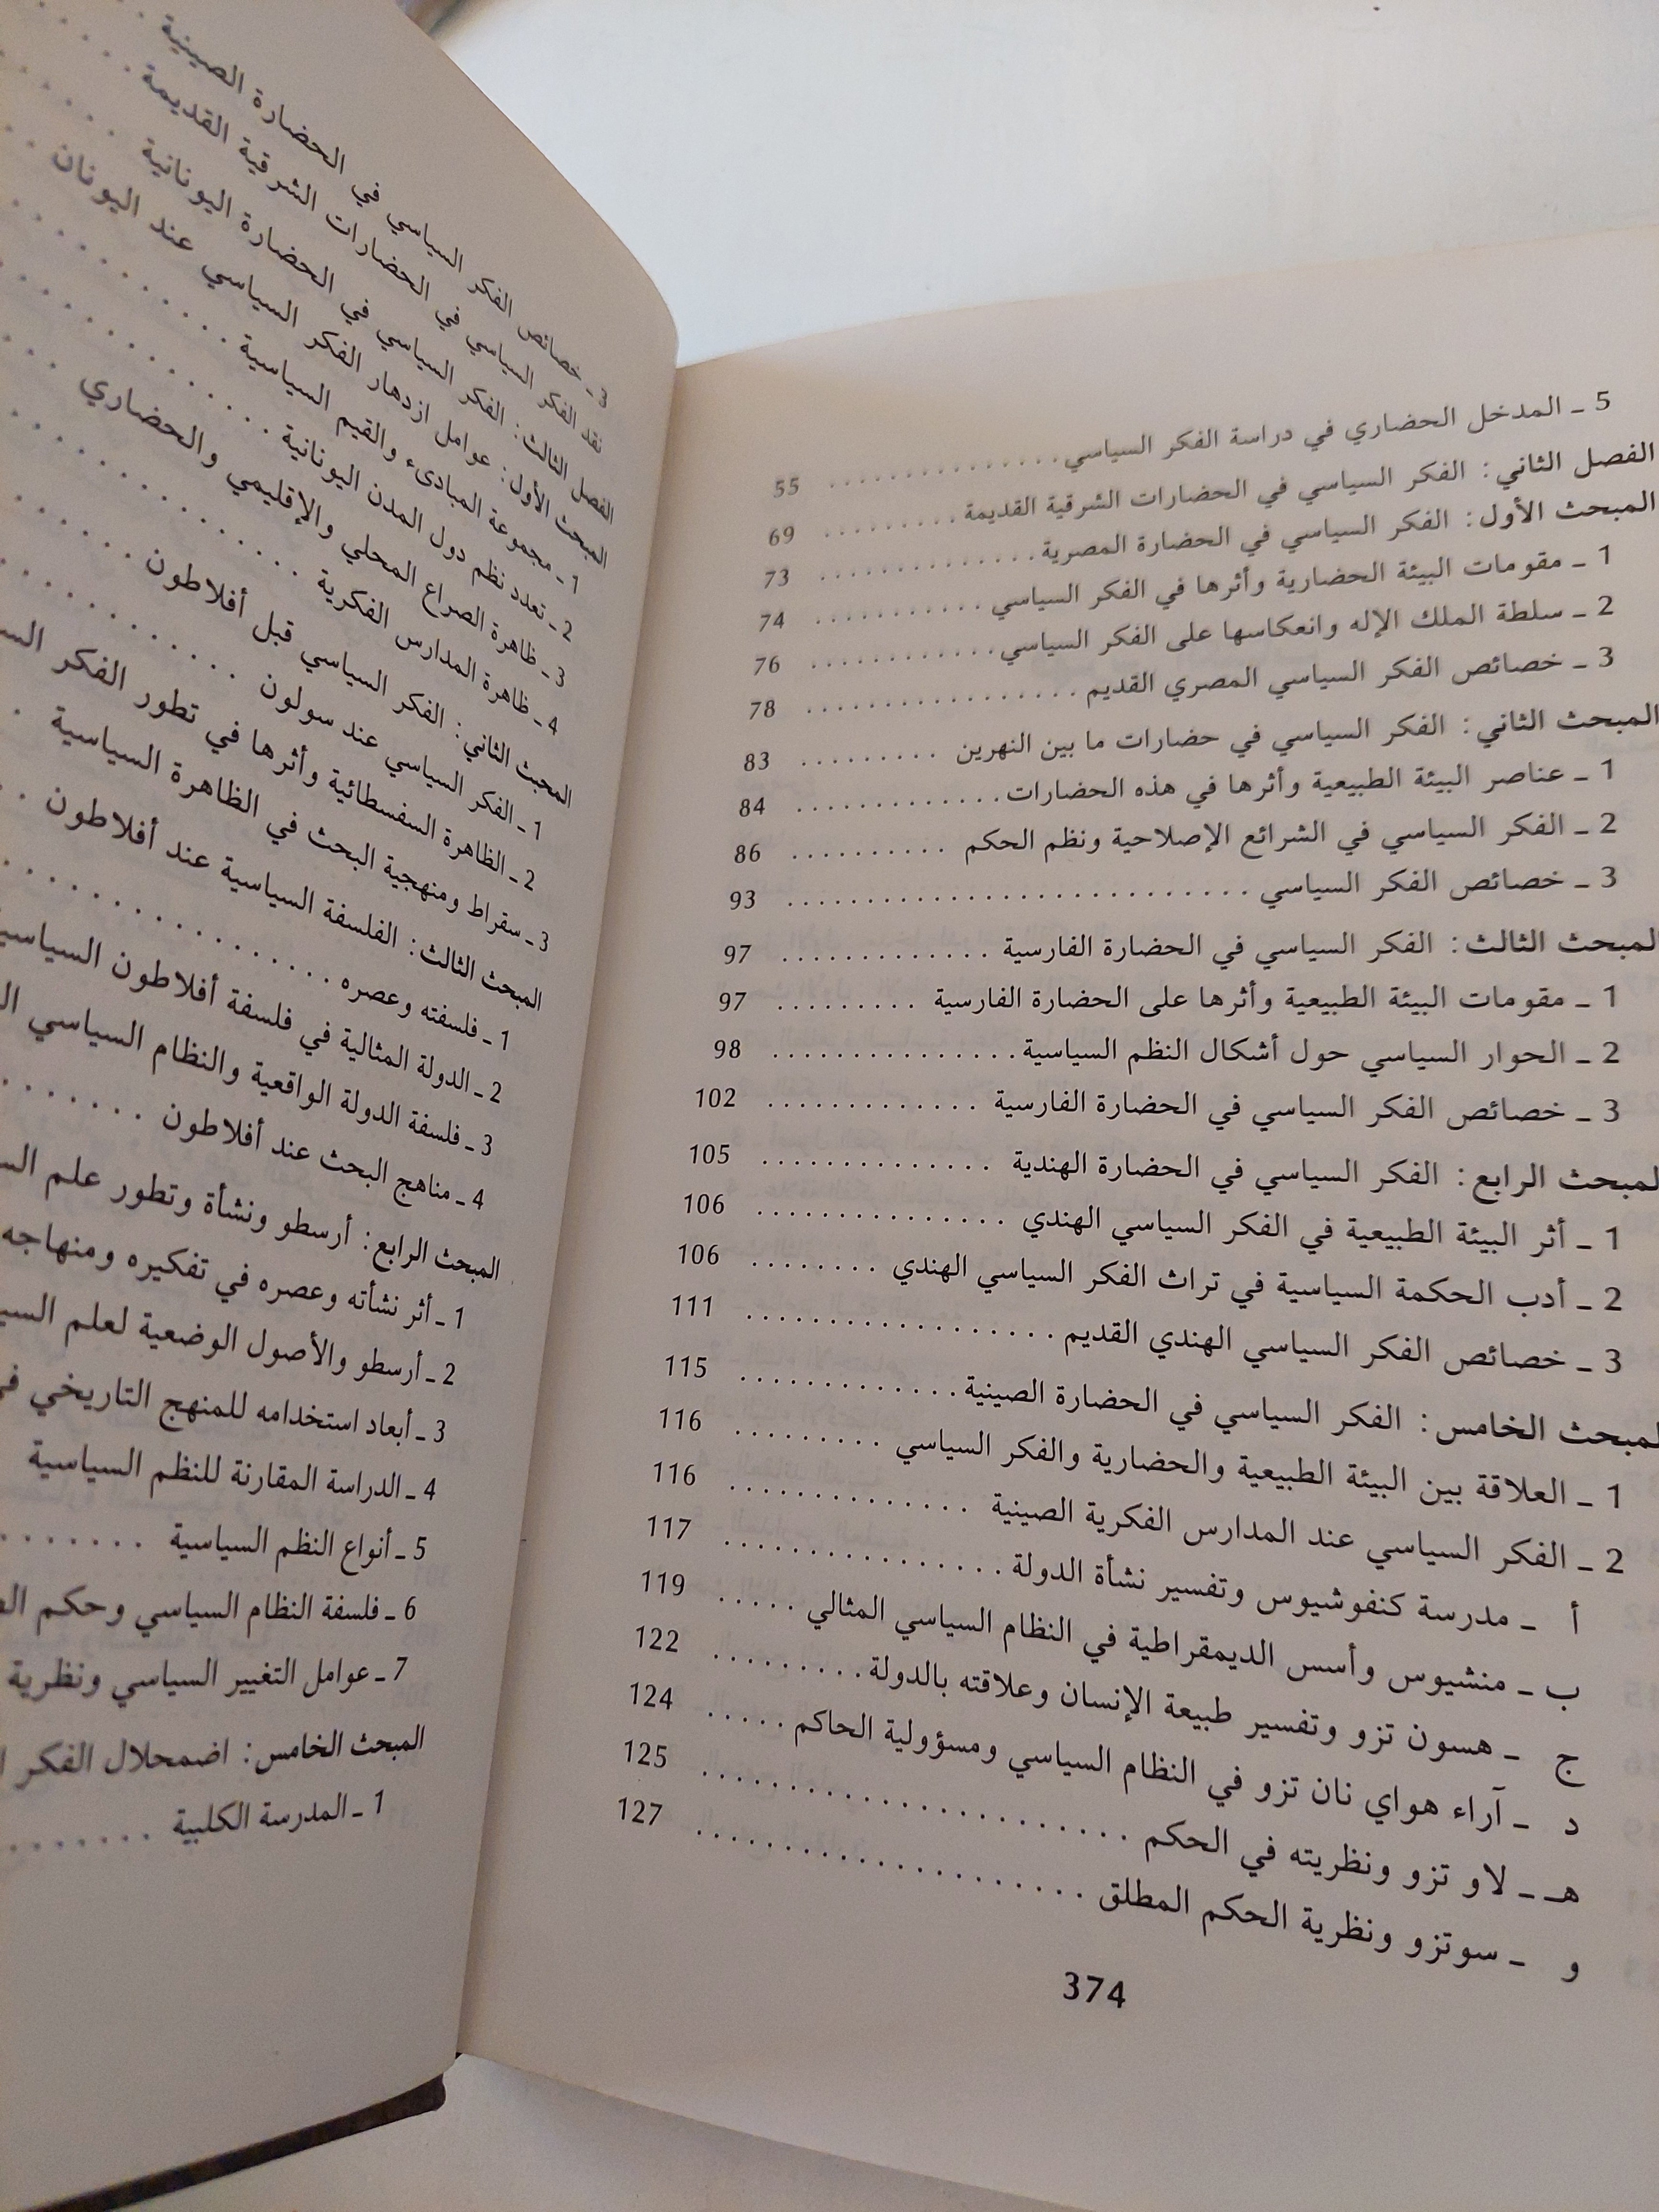 5 ـ المدخل الحضاري في دراسة الفكر السياسي . . . . . . . . . . . . . 55
الفصل الثاني: الفكر السياسي في الحضارات الشرقية القديمة . . . . . . . . . 69
المبحث الأول: الفكر السياسي في الحضارة المصرية . . . . . . . . . . . . . . 73
1 ـ مقومات البيئة الحضارية وأثرها في الفكر السياسي . . . . . . . . . . . 74
2 ـ سلطة الملك الإله وانعكاسها على الفكر السياسي . . . . . . . . . . . . 76
3 ـ خصائص الفكر السياسي المصري القديم . . . . . . . . . . . . . . . . . 78
المبحث الثاني: الفكر السياسي في حضارات ما بين النهرين . . . . . . . . . 83
1 ـ عناصر البيئة الطبيعية وأثرها في هذه الحضارات . . . . . . . . . . . . . 84
2 ـ الفكر السياسي في الشرائع الإصلاحية ونظم الحكم . . . . . . . . . . 86
3 ـ خصائص الفكر السياسي . . . . . . . . . . . . . . . . . . . . . . . . 93
لمبحث الثالث: الفكر السياسي في الحضارة الفارسية . . . . . . . . . . . . . 97
1 ـ مقومات البيئة الطبيعية وأثرها على الحضارة الفارسية . . . . . . . . . 97
2 ـ الحوار السياسي حول أشكال النظم السياسية . . . . . . . . . . . . . . . 98
3 ـ خصائص الفكر السياسي في الحضارة الفارسية . . . . . . . . . . . . . 102
لمبحث الرابع: الفكر السياسي في الحضارة الهندية . . . . . . . . . . . . . 105
1 ـ أثر البيئة الطبيعية في الفكر السياسي الهندي . . . . . . . . . . . . . . 106
2 ـ أدب الحكمة السياسية في تراث الفكر السياسي الهندي . . . . . . . . 106
3 ـ خصائص الفكر السياسي الهندي القديم . . . . . . . . . . . . . . . . . . 111
لمبحث الخامس: الفكر السياسي في الحضارة الصينية . . . . . . . . . . . . . 115
1 ـ العلاقة بين البيئة الطبيعية والحضارية والفكر السياسي . . . . . . . . . 116
2 ـ الفكر السياسي عند المدارس الفكرية الصينية . . . . . . . . . . . . . . 116
أ ـ مدرسة كنفوشيوس وتفسير نشأة الدولة . . . . . . . . . . . . . . . . 117
ب ـ منشيوس وأسس الديمقراطية في النظام السياسي المثالي . . . . . 119
ج ـ هسون تزو وتفسير طبيعة الإنسان وعلاقته بالدولة . . . . . . . . . 122
د ـ آراء هواي نان تزو في النظام السياسي ومسؤولية الحاكم . . . . . 124
هـ ـ لاو تزو ونظريته في الحكم . . . . . . . . . . . . . . . . . . . . 125
و ـ سوتزو ونظرية الحكم المطلق . . . . . . . . . . . . . . . . . . . . 127
374
3 ـ خصائص الفكر السياسي في الحضارة الصينية . .
نقد الفكر السياسي في الحضارات الشرقية القديمة . . . . .
الفصل الثالث: الفكر السياسي في الحضارة اليونانية . . . . .
المبحث الأول: عوامل ازدهار الفكر السياسي عند اليونان . .
1 ـ مجموعة المبادىء والقيم السياسية . . . . . . . . .
2 ـ تعدد نظم دول المدن اليونانية . . . . . . . . . .
3 ـ ظاهرة الصراع المحلي والإقليمي والحضاري . . .
4 ـ ظاهرة المدارس الفكرية . . . . . . . . . . . .
المبحث الثاني: الفكر السياسي قبل أفلاطون . . . . . .
1 ـ الفكر السياسي عند سولون . . . . . . . . . .
2 ـ الظاهرة السفسطائية وأثرها في تطور الفكر
3 ـ سقراط ومنهجية البحث في الظاهرة السياسية .
المبحث الثالث: الفلسفة السياسية عند أفلاطون . .
1 ـ فلسفته وعصره . . . . . . . . . . . . . . .
2 ـ الدولة المثالية في فلسفة أفلاطون
3 ـ فلسفة الدولة الواقعية والنظام السياسي
4 ـ مناهج البحث عند أفلاطون . . . . . . .
المبحث الرابع: أرسطو ونشأة وتطور علم
1 ـ أثر نشأته وعصره في تفكيره ومنهاجه
2 ـ أرسطو والأصول الوضعية لعلم
3 ـ أبعاد استخدامه للمنهج التاريخي
4 ـ الدراسة المقارنة للنظم السياسية
5 ـ أنواع النظم السياسية . . . . . . .
6 ـ فلسفة النظام السياسي وحكم
7 ـ عوامل التغيير السياسي ونظرية
المبحث الخامس: اضمحلال الفكر
1 ـ المدرسة الكلبية . . . . . . .